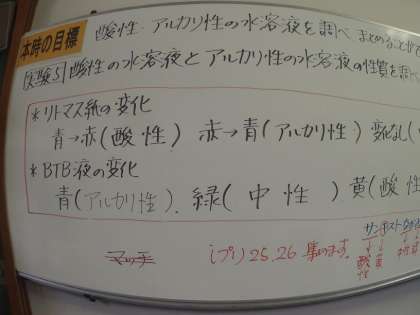 本時の目標 酸性・アルカリ性の水溶液を調べ まとめることがで
実験5 酸性の水溶液とアルカリ性の水溶液の性質を調べ
*リトマス紙の変化
青→赤(酸性) 赤→青(アルカリ性) 変化なし(
*BTB液の変化
青(アルカリ性)、緑(中性) 黄(酸性
マッチ
(プリ)25.26 集めます。
酸性